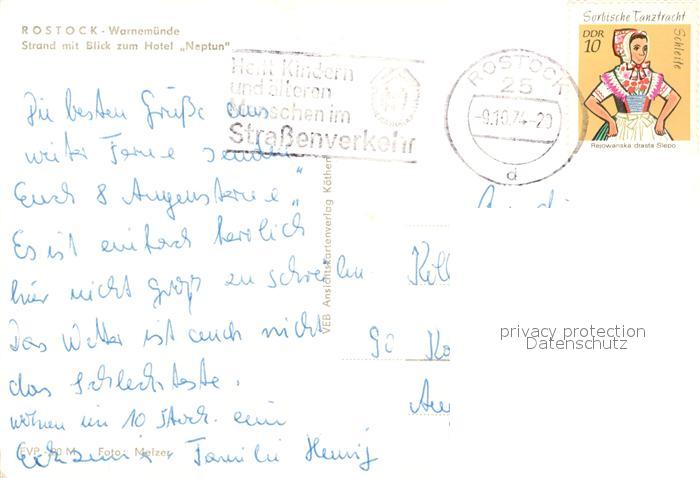 ROSTOCK - Warnemünde
Strand mit Blick zum Hotel „Neptun"
Helft Kindern
und älteren
Menschen im
Straßenverkehr
ROSTOCK
25
-9.10.74-20
d
Sorbische Tanztracht
Schleife
DDR
10
Rejowanska drasta Slepo
Die besten Grüße aus
weiter Ferne senden
Euch 8 Augensterne „
Es ist einfach herrlich
hier nicht groß zu schreiben
Das Wetter ist auch nicht
das Schlechteste.
wohnen im 10 Stock. ein
Familie Hennig
VEB Ansichtskartenverlag Köthen
90
EVP -20 M Foto: Melzer
privacy protection
Datenschutz